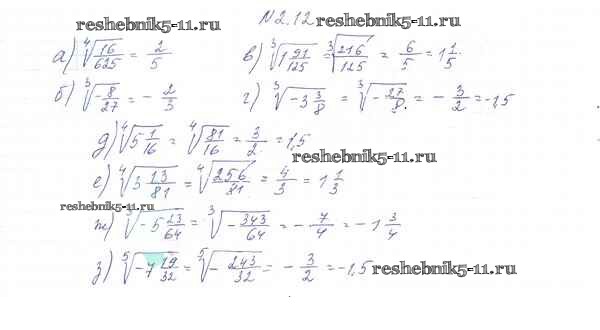 reshebnik5-11.ru
№2.12
reshebnik5-11.ru
а) ⁴√(16/625) = 2/5
в) ³√(1 91/125) = ³√(216/125) = 6/5 = 1 1/5.
б) ³√(-8/27) = - 2/3
г) ³√(-3 3/8) = ³√(-27/8) = - 3/2 = -1,5
д) ⁴√(5 1/16) = ⁴√(81/16) = 3/2 = 1,5
reshebnik5-11.ru
е) ⁴√(3 13/81) = ⁴√(256/81) = 4/3 = 1 1/3
reshebnik5-11.ru
ж) ³√(-5 23/64) = ³√(-343/64) = - 7/4 = -1 3/4
з) ⁵√(-7 19/32) = ⁵√(-243/32) = - 3/2 = -1,5
reshebnik5-11.ru